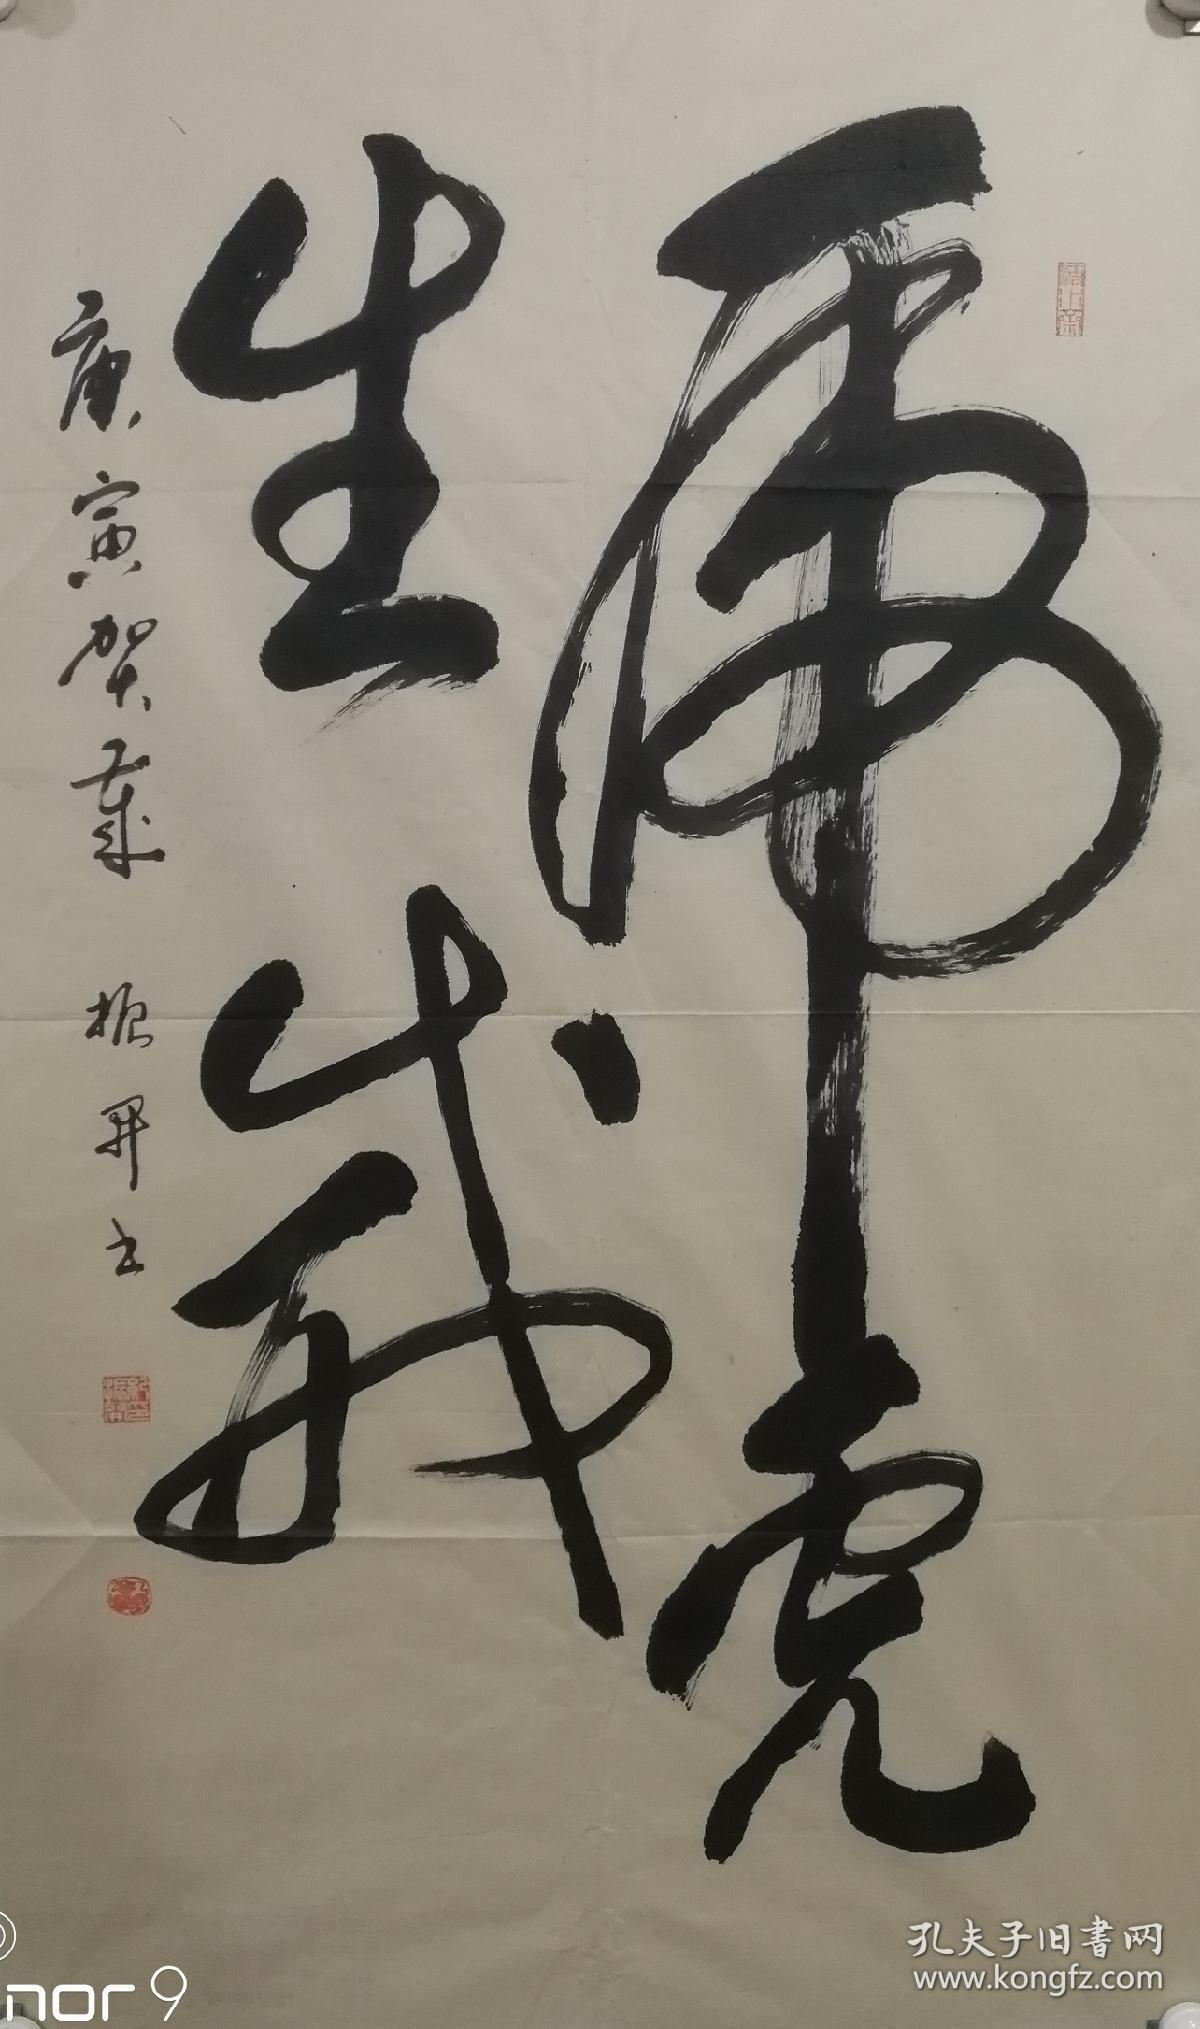 虎虎
生威
庚寅贺岁 振开书
孔夫子旧書网
www.kongfz.com
nor 9